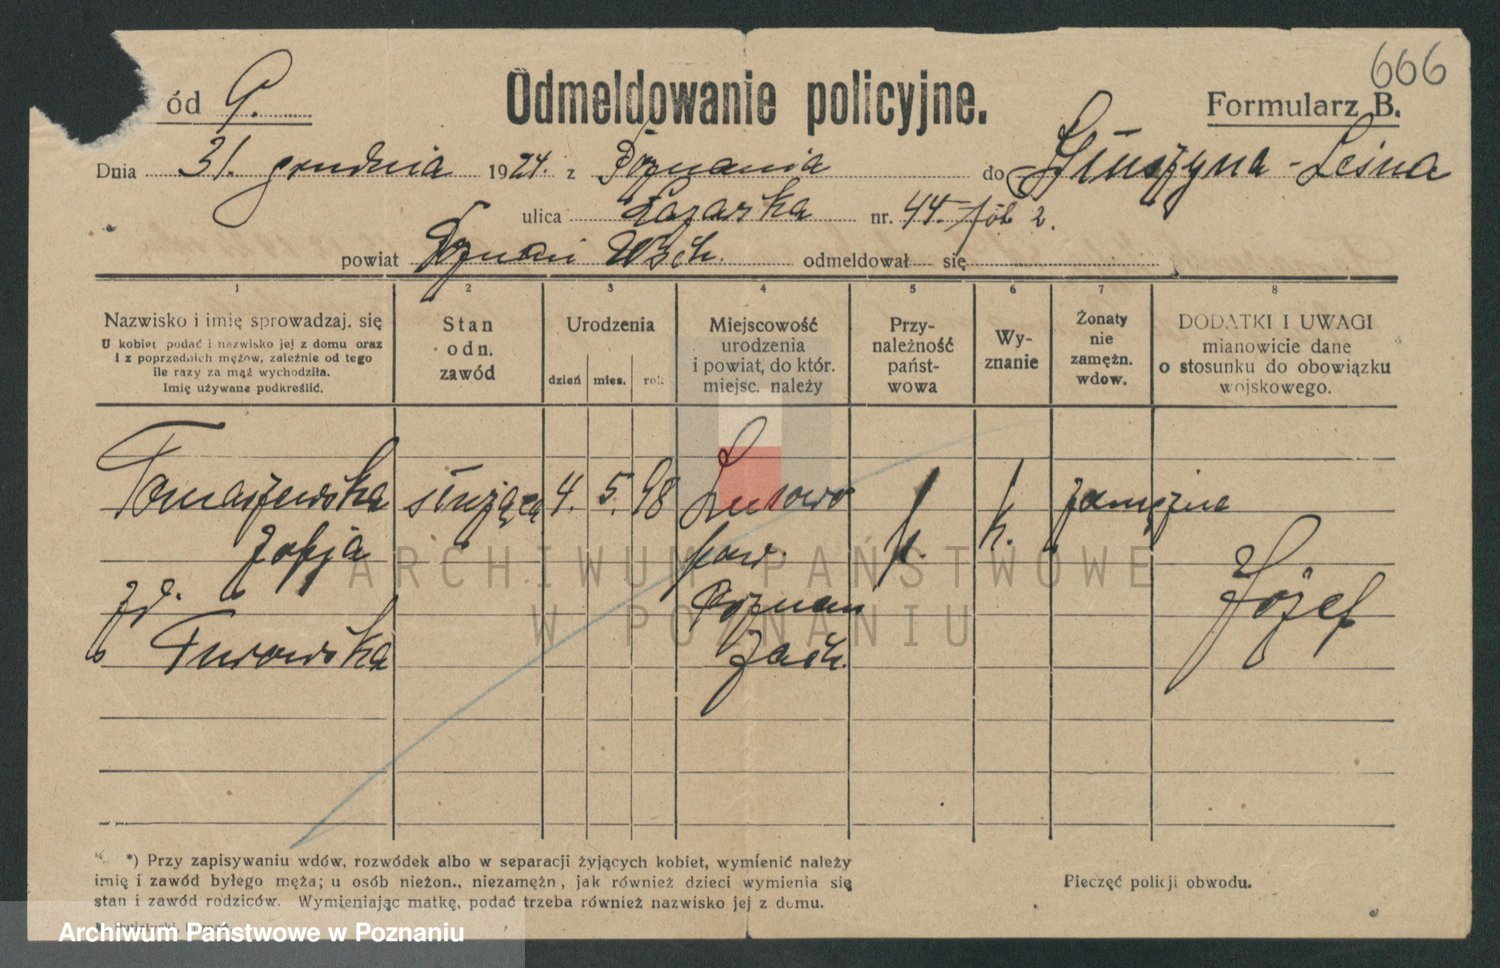 666
ód 9.
Odmeldowanie policyjne.
Formularz B.
Dnia 31. grudnia 1924. z Poznania do Głuszyna-Leśna
ulica Łazarska nr. 44.
powiat Poznań Wsch. odmeldował się
1 2 3 4 5 6 7 8
Nazwisko i imię sprowadzaj. się
U kobiet podać i nazwisko jej z domu oraz
i z poprzednich mężów, zależnie od tego
ile razy za mąż wychodziła.
Imię używane podkreślić.
Stan
odn.
zawód
Urodzenia
dzień mies. rok
Miejscowość
urodzenia
i powiat, do któr.
miejsc. należy
Przy-
należność
państ-
wowa
Wy-
znanie
Żonaty
nie
zamężn.
wdow.
DODATKI I UWAGI
mianowicie dane
o stosunku do obowiązku
wojskowego.
Tomaszewska służąca 4. 5. 98 Lusowo zamężna
Zofja pow. p. k.
zd. Poznań Józef
Turowska Zach.
ARCHIWUM PAŃSTWOWE
W POZNANIU
*) Przy zapisywaniu wdów, rozwódek albo w separacji żyjących kobiet, wymienić należy
imię i zawód byłego męża; u osób nieżon., niezamężn, jak również dzieci wymienia się
stan i zawód rodziców. Wymieniając matkę, podać trzeba również nazwisko jej z domu.
Pieczęć policji obwodu.
Archiwum Państwowe w Poznaniu